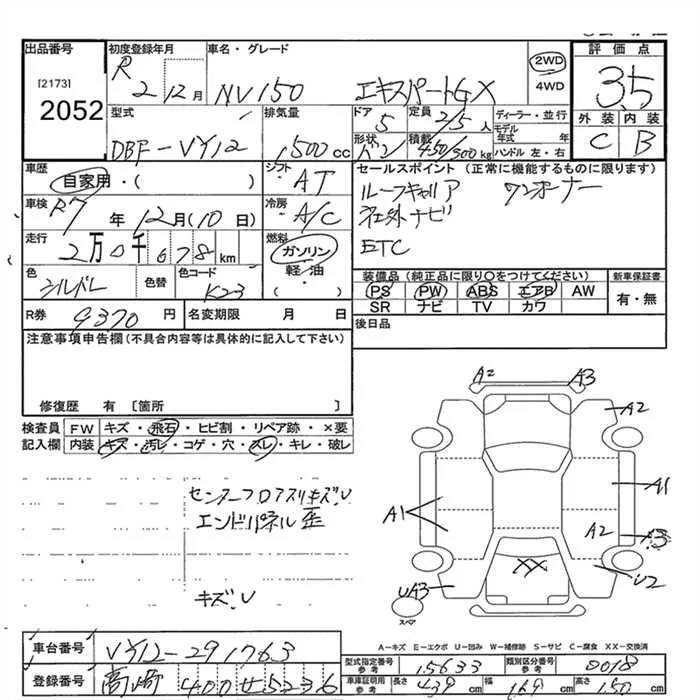 出品番号 初度登録年月 車名・グレード 評価点
[2173] R 2年 12月 NV150 エキスパートGX 2WD 3.5
2052 4WD
型式 排気量 ドア 定員 ディーラー・並行 外装 内装
DBF-VY12 1500cc 5 2/5人 モデル年式 年 C B
形状 積載 450/300kg ハンドル 左・右
車歴 シフト セールスポイント (正常に機能するものに限ります)
自家用・( ) AT ルーフキャリア ワンオーナー
車検 R7年12月(10日) 冷房 A/C 社外ナビ
走行 2万0千678km 燃料 ガソリン ETC
軽油
色 色替 色コード 装備品(純正品に限り○をつけてください) 新車保証書
シルバー K23 ( ・ ) PS PW ABS エアB AW 有・無
SR ナビ TV カワ
R券 9370円 名変期限 月 日 後日品
注意事項申告欄(不具合内容等は具体的に記入して下さい)
修復歴 有 [箇所 ]
検査員 FW キズ・飛石・ヒビ割・リペア跡・×要
記入欄 内装 キズ・汚レ・コゲ・穴・スレ・キレ・破レ
センターフロアスリキズU
エンドパネル歪
キズ、U
A2 A3
A2
A1 A1
A2
XX U2
UA3
スペア
A-キズ E-エクボ U-凹み W-補修跡 S-サビ C-腐食 XX-交換済
車台番号 VY12-291763
型式指定番号 参考 15633 類別区分番号 参考 0018
登録番号 高崎 400 せ 5236
車庫証明用 参考 長さ 439cm 幅 169cm 高さ 150cm